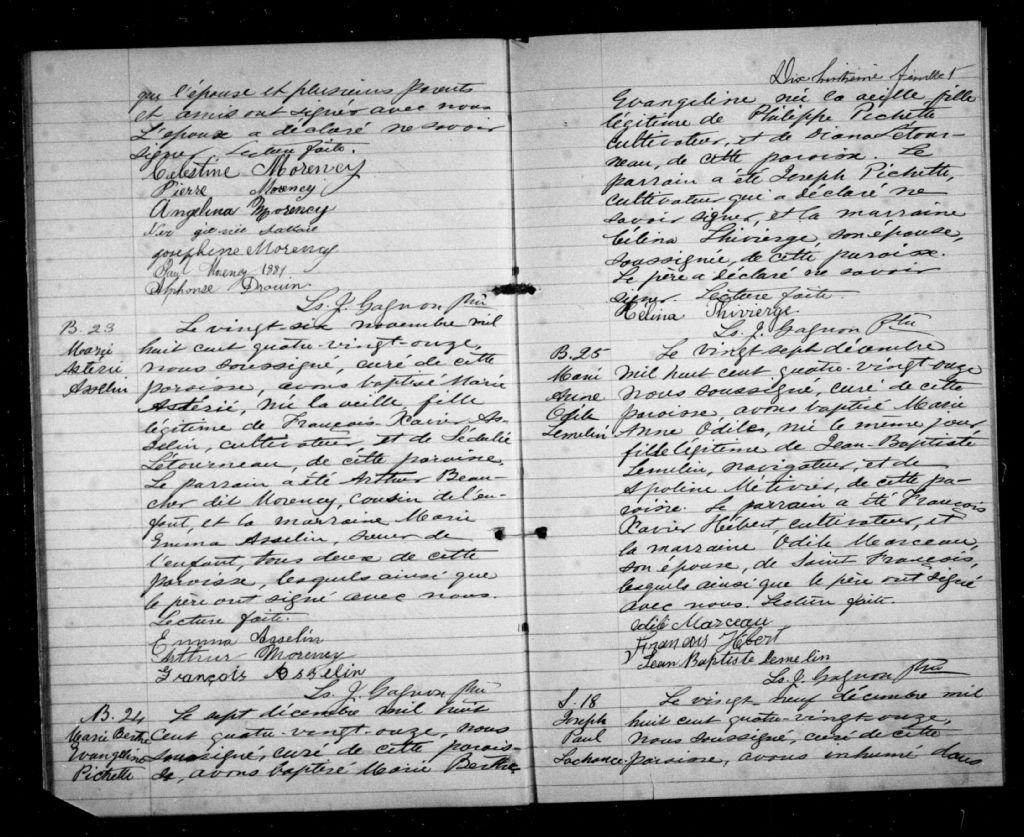 que l'épouse et plusieurs parents
et amis ont signé avec nous
L'époux a déclaré ne savoir
signer. Lecture faite.
Célestine Morency
Pierre Morency
Angélina Morency
Joséphine Morency
Paul Morency 1891
Alphonse Drouin
Ls. J. Gagnon Ptre
B. 23
Marie
Astérie
Asselin
Le vingt-six novembre mil
huit cent quatre-vingt-onze,
nous soussigné, curé de cette
paroisse, avons baptisé Marie
Astérie, née la veille, fille
légitime de François-Xavier As-
selin, cultivateur, et de Sédulie
Létourneau, de cette paroisse.
Le parrain a été Arthur Beau-
cher dit Morency, cousin de l'en-
fant, et la marraine Marie
Emma Asselin, soeur de
l'enfant, tous deux de cette
paroisse, lesquels ainsi que
le père ont signé avec nous.
Lecture faite.
Emma Asselin
Arthur Morency
François Asselin
Ls. J. Gagnon Ptre
B. 24
Marie Berthe
Evangéline
Pichette
Le sept décembre mil huit
cent quatre-vingt-onze, nous
soussigné, curé de cette parois-
se, avons baptisé Marie Berthe
Dix huitième feuillet
Evangéline née la veille fille
légitime de Philippe Pichette
cultivateur, et de Diana Létour-
neau, de cette paroisse. Le
parrain a été Joseph Pichette,
cultivateur qui a déclaré ne
savoir signer, et la marraine
Célina Thivierge, son épouse,
soussignée, de cette paroisse.
Le père a déclaré ne savoir
signer. Lecture faite.
Célina Thivierge
Ls. J. Gagnon Ptre
B. 25
Marie
Anne
Odile
Lemelin
Le vingt sept décembre
mil huit cent quatre-vingt onze
nous soussigné, curé de cette
paroisse avons baptisé Marie
Anne Odile, née le même jour,
fille légitime de Jean-Baptiste
Lemelin, navigateur, et de
Apoline Métivier, de cette pa-
roisse. Le parrain a été François
Xavier Hébert cultivateur, et
la marraine Odile Marceau,
son épouse, de Saint François,
lesquels ainsi que le père ont signé
avec nous. Lecture faite.
Odile Marceau
François Hébert
Jean Baptiste Lemelin
Ls. J. Gagnon Ptre
S. 18
Joseph
Paul
Lachance
Le vingt neuf décembre mil
huit cent quatre-vingt-onze,
nous soussigné, curé de cette
paroisse, avons inhumé dans